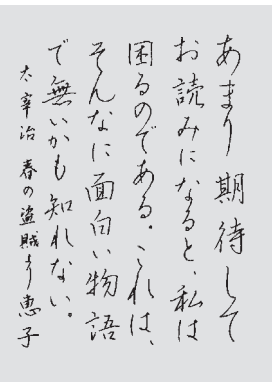 あまり期待して
お読みになると、私は
困るのである。これは、
そんなに面白い物語
で無いかも知れない。
太宰治 春の盗賊より 恵子